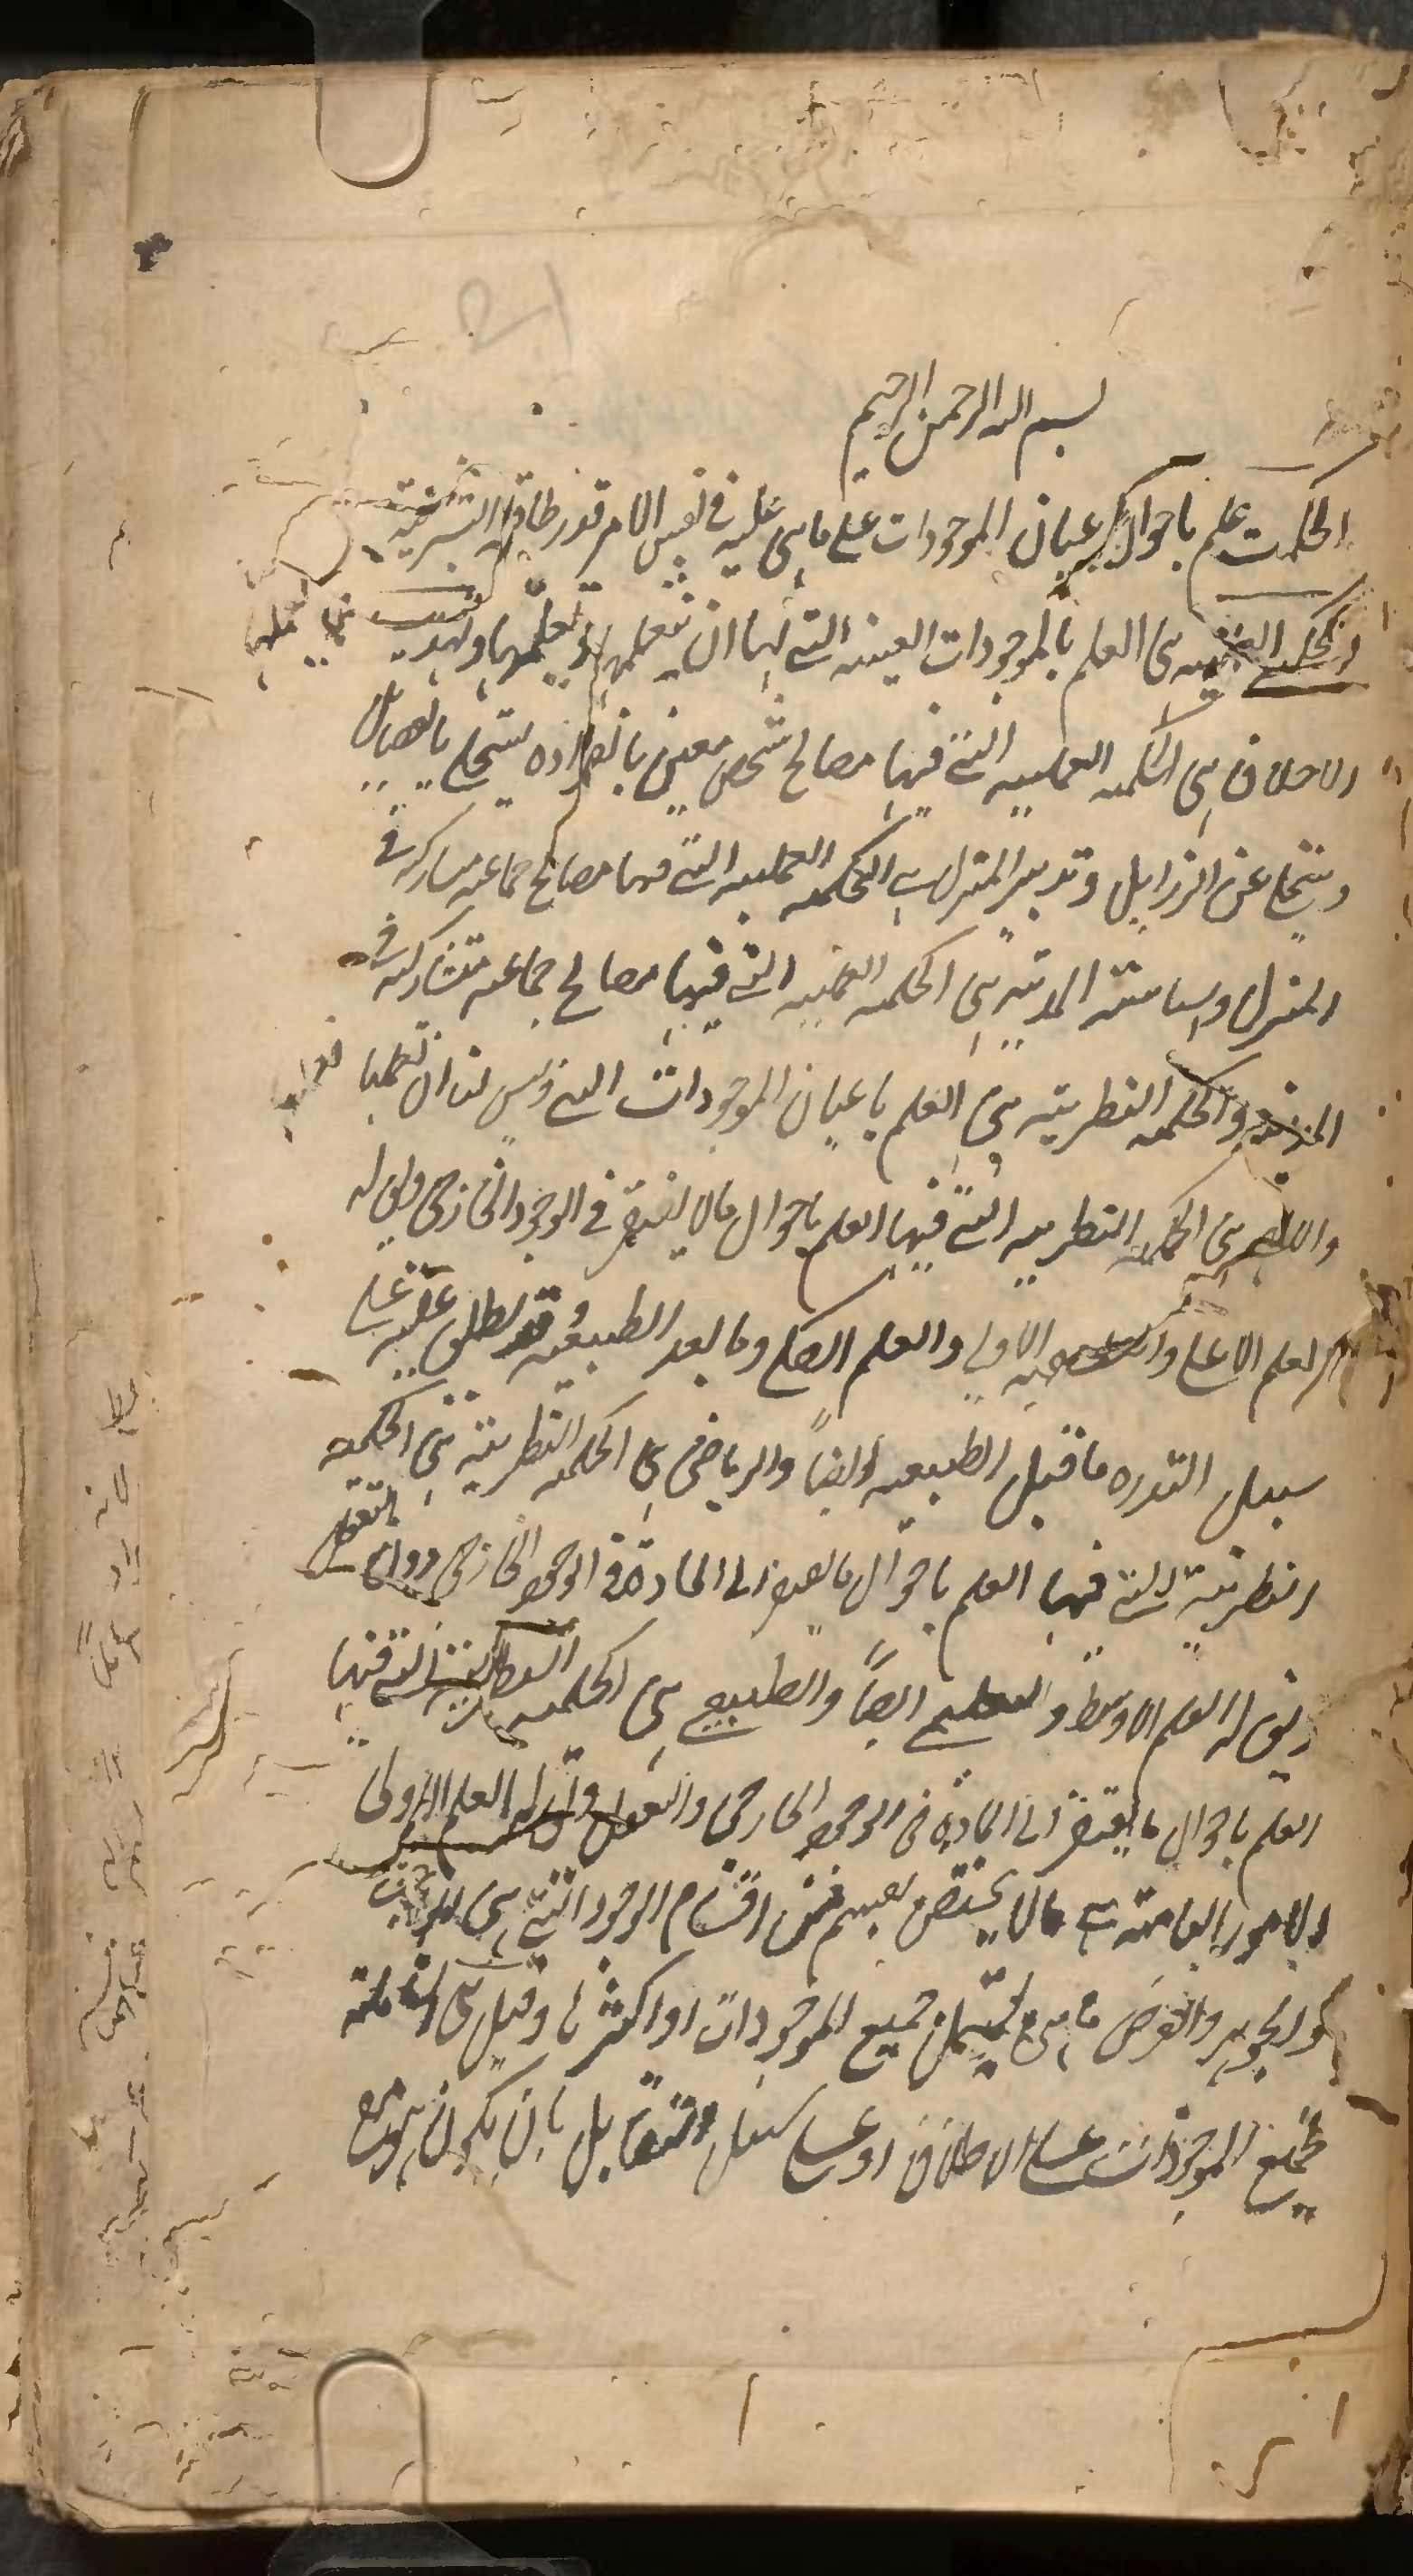 بسم الله الرحمن الرحيم
الحكمت علم باحوال اعيان الموجودات على ما هى عليه فى نفس الامر بقدر طاقة البشرية
والحكمة العملية هى العلم بالموجودات العينية التى لها ان نتعلمها
الاخلاق هى الحكمه العمليه التى فيها مصالح شخص معين بانفراده ليتحلى بالفضائل
ويتخلى عن الرزايل وتدبير المنزل هى الحكمه العمليه التى فيها مصالح جماعه متشاركه فى
المنزل وسياسته المدنيه هى الحكمه العمليه التى فيها مصالح جماعه متشاركه فى
المدينه والحكمه النظريته هى العلم باعيان الموجودات التى ليس لنا ان نعلمها
والالهى هى الحكمه النظريه التى فيها العلم باحوال مالا يفتقر فى الوجود الخارجى ويق له
العلم الاعلى والفلسفيه الاولى والعلم الكلى وما بعد الطبيعيه وقد يطلق عليه على
سبيل الندره ما قبل الطبيعيه ايضاً والرياضى هى الحكمه النظريته هى الحكمه
النظريته التى فيها العلم باحوال ما يفتقر الى المادة فى الوجود الخارجى دون التعقل
ويق له العلم الاوسط والتعليمى ايضاً والطبيعى هى الحكمه النظريته التى فيها
العلم باحوال ما يفتقر الى المادة فى الوجود الخارجى والتعقل ويق له العلم الادنى
الامور العامته هى مالا يختص بقسم من اقسام الوجود التى هى الواجب
والجوهر والعرض ما هى يشمل جميع الموجودات او اكثرها وقيل هى الشاملته
لجميع الموجودات على الاطلاق او على سبيل التقابل بان يكون هو مع